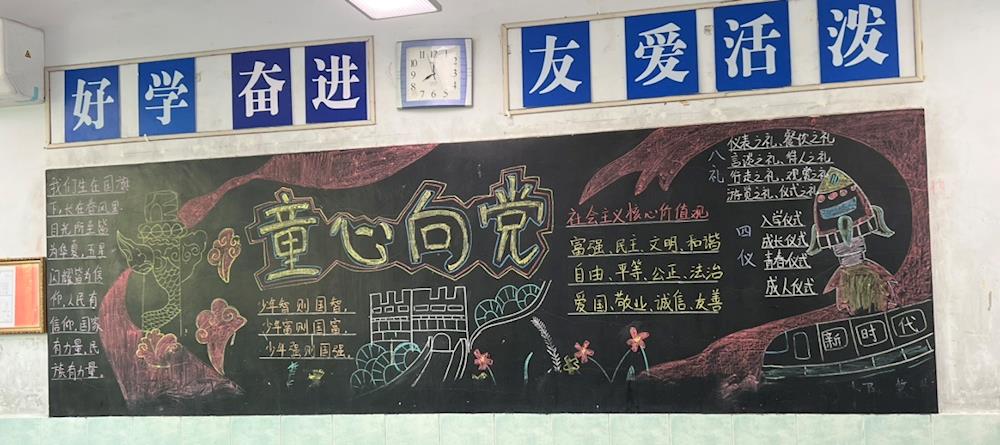 好学 奋进
友爱活泼
我们生在国旗
下,长在春风里
目光所至皆
为华夏,五星
闪耀皆为信
仰,人民有
信仰,国家
有力量,民
族有力量。
童心向党
少年智则国智,
少年富则国富,
少年强则国强。
社会主义核心价值观
富强、民主、文明、和谐
自由、平等、公正、法治
爱国、敬业、诚信、友善
八礼
仪表之礼、餐饮之礼
言谈之礼、待人之礼
行走之礼、观赏之礼
游览之礼、仪式之礼
四仪
入学仪式
成长仪式
青春仪式
成人仪式
新时代